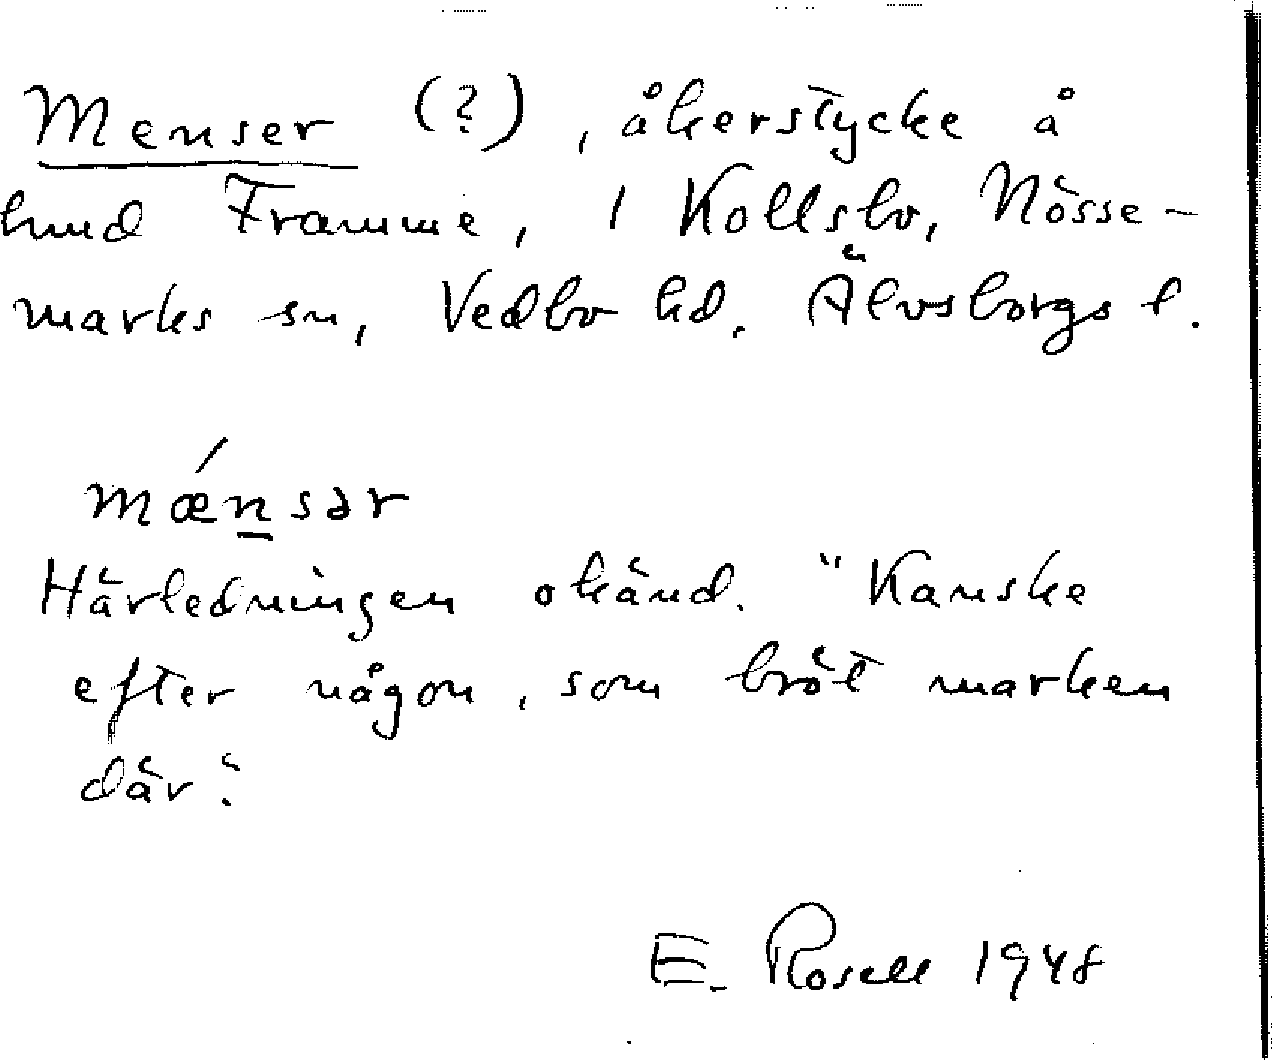 Menser (?), åkerstycke å
hmd Framme, 1 Kollsbo, Nösse-
marks sn, Vedbo hd. Älvsborgs l.
mǽn̲sər
Härledningen okänd. "Kanske
efter någon, som bröt marken
där."
E. Rosell 1948